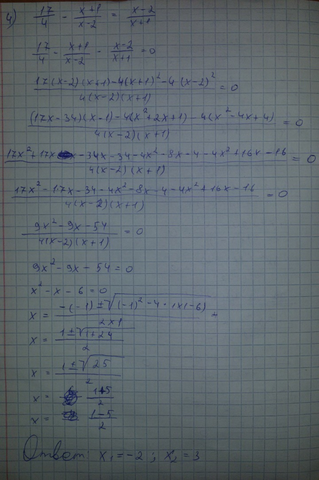 4) 17/4 - x+1/x-2 = x-2/x+1
17/4 - x+1/x-2 - x-2/x+1 = 0
17(x-2)(x+1)-4(x+1)²-4(x-2)²/4(x-2)(x+1) = 0
(17x-34)(x-1)-4(x²+2x+1)-4(x²-4x+4)/4(x-2)(x+1) = 0
17x²+17x-34x-34-4x²-8x-4-4x²+16x-16/4(x-2)(x+1) = 0
17x²-17x-34-4x²-8x-4-4x²+16x-16/4(x-2)(x+1) = 0
9x²-9x-54/4(x-2)(x+1) = 0
9x²-9x-54=0
x²-x-6=0
x = -(-1)±√(-1)²-4·1×(-6)/2×1 =
x = 1±√1+24/2
x = 1±√25/2
x = 1+5/2
x = 1-5/2
Ответ x₁=-2; x₂=3